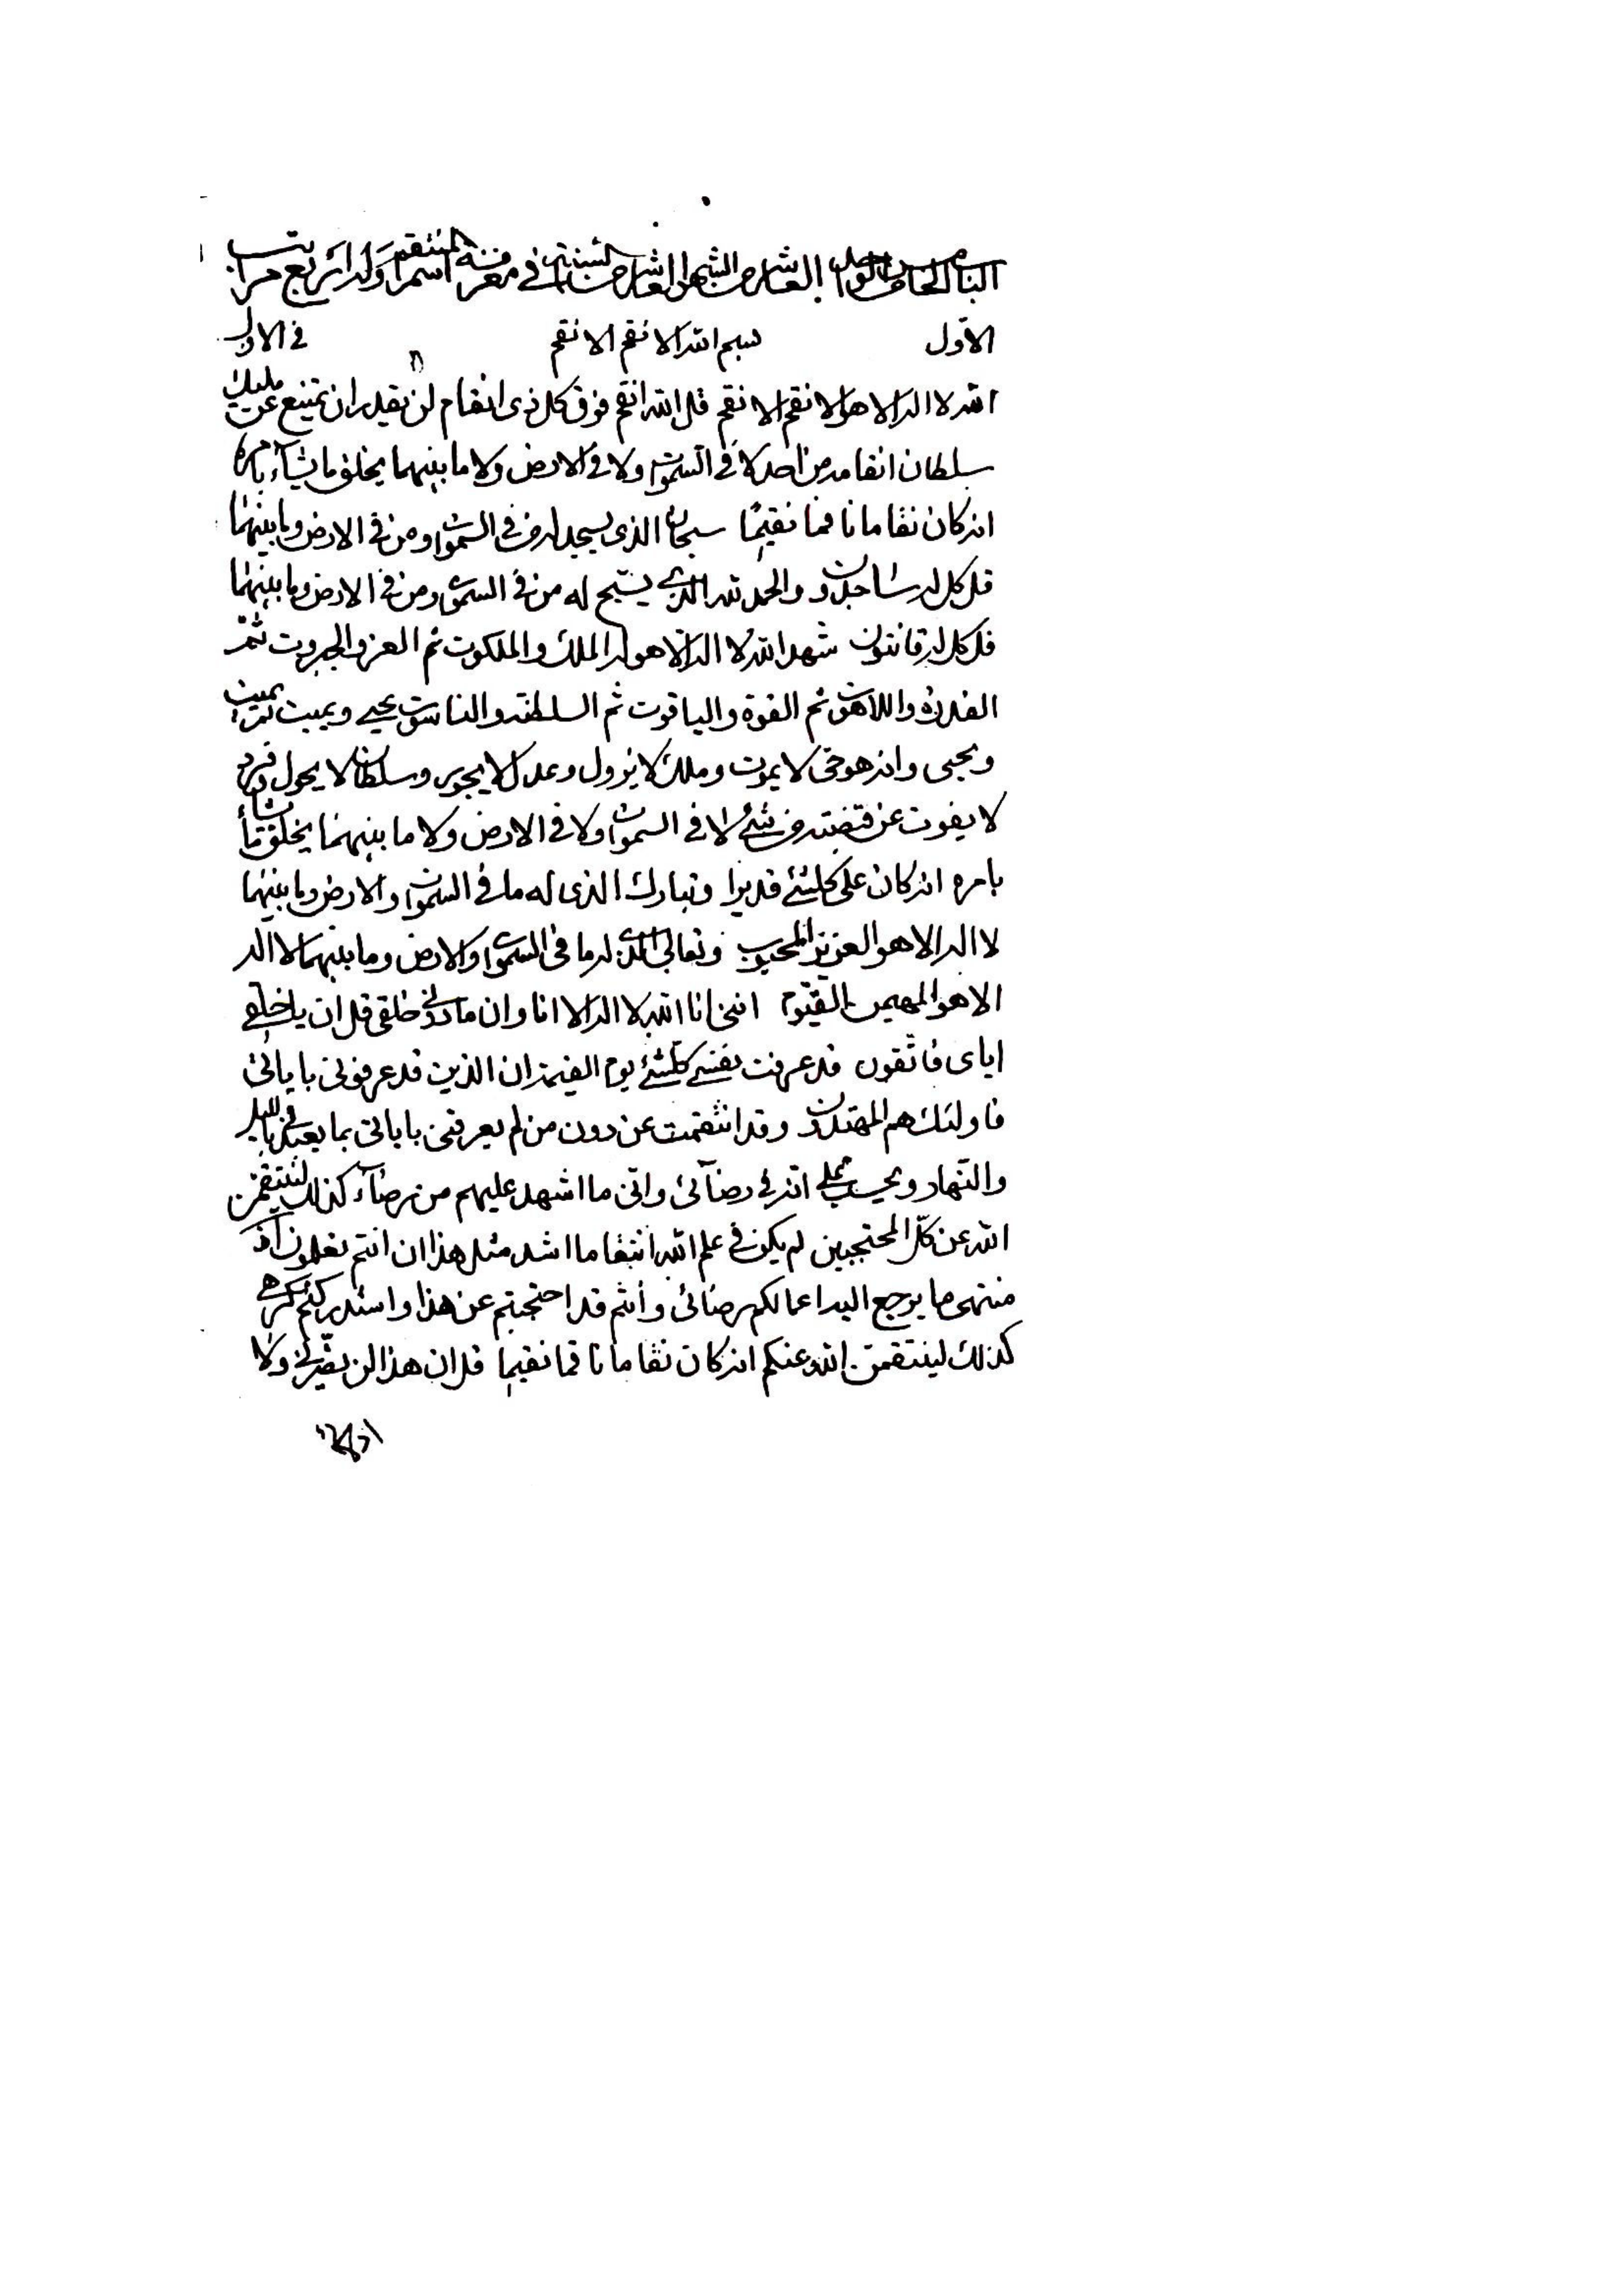 الباب الحادي والواحد العاشر من الشهر العاشر من السنة في معرفة اسم المنتقم وله اربع مراتب
الاول بسم الله الانقم الانقم في الاول
الله لا اله الا هو الانقم الانقم قل الله انقم فوق كل ذى انتقام لن يقدر ان يمتنع عن مليك
سلطان انتقامه من احد لا فى السموات ولا فى الارض ولا ما بينهما يخلق ما يشآء بامره
انه كان نقاما ناقما نقيما سبحان الذى يسجد له من فى السموات ومن فى الارض وما بينهما
قل كل له ساجدون والحمد لله الذى يسبح له من فى السموات ومن فى الارض وما بينهما
قل كل له قانتون شهد الله انه لا اله الا هو له الملك والملكوت ثم العز والجبروت ثم
القدرة واللاهوت ثم القوة والياقوت ثم السلطنة والناسوت يحيى ويميت ثم يميت
ويحيى وانه هو حى لا يموت وملك لا يزول وعدل لا يجور وسلطان لا يحول وفرد
لا يفوت عن قبضته من شئ لا فى السموات ولا فى الارض ولا ما بينهما يخلق ما يشآء
بامره انه كان على كلشئ قديرا وتبارك الذى له ما فى السموات والارض وما بينهما
لا اله الا هو العزيز المحبوب وتعالى الذى له ما فى السموات والارض وما بينهما لا اله
الا هو المهيمن القيوم اننى انا الله لا اله الا انا وان ما دونى خلقى قل ان يا خلقى
اياى فاتقون قد عرفت نفسى كلشئ يوم القيمة ان الذين قد عرفونى باياتى
فاولئك هم المهتدون وقد انتقمت عن دون من لم يعرفنى باياتى بما يعبدنى بالليل
والنهار ويحسب انه فى رضآئى وانى ما اشهد عليهم من رضآء كذلك لينتقمن
الله عن كل المحتجبين لم يكن فى علم الله انتقاما اشد مثل هذا ان انتم تعلمون اذ
منتهى ما يرجع اليه اعمالكم رضائى وانتم قد احتجبتم عن هذا واستدركتم كرهى
كذلك لينتقمن الله عنكم انه كان نقاما ناقما نقيما قل ان هذا لن يضرنى ولا